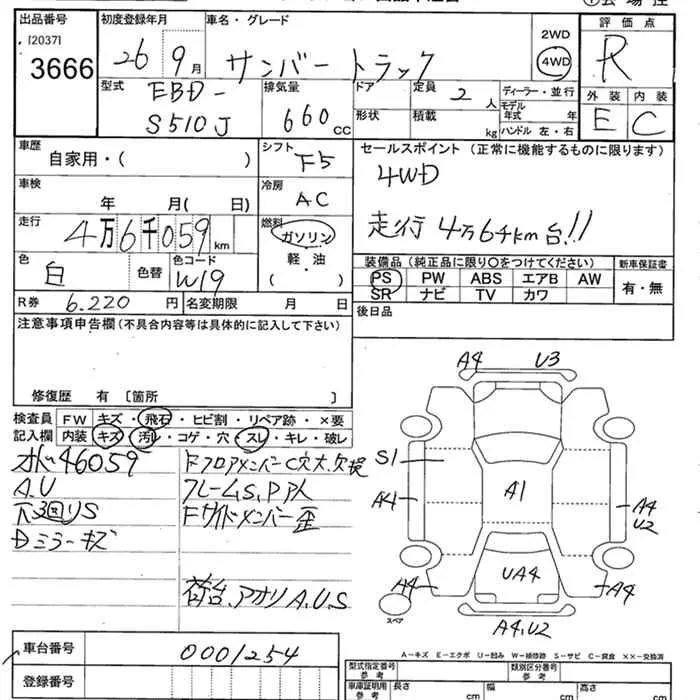 出品番号 初度登録年月 車名・グレード 評価点
[2037]
3666 26 9月 サンバートラック 2WD 4WD R
型式 排気量 ドア 定員 ディーラー・並行 外装 内装
EBD- 2人 モデル年式 年
S510J 660cc 形状 積載 kg ハンドル 左・右 E C
車歴 自家用・( ) シフト F5 セールスポイント (正常に機能するものに限ります)
車検 年 月( 日) 冷房 AC 4WD
走行 4万6千059km 燃料 ガソリン 走行4万6千km台!!
色 白 色替 色コード W19 軽・油 ( )
装備品 (純正品に限り○をつけてください) 新車保証書
PS PW ABS エアB AW 有・無
SR ナビ TV カワ
R券 6.220円 名変期限 月 日 後日品
注意事項申告欄(不具合内容等は具体的に記入して下さい)
修復歴 有 [箇所 ]
検査員 FW キズ・飛石・ヒビ割・リペア跡・×要
記入欄 内装 キズ・汚レ・コゲ・穴・スレ・キレ・破レ
オド46059 Fフロアメンバー C穴大.欠損
A.U フレームS.P.
下回りS Fサイドメンバー歪
Dミラーキズ
荷台.アオリA.U.S
A4 U3
S1
A4 A1 A4
U2
A4 UA4 A4
スペア
A4,U2
A-キズ E-エクボ U-凹み W-補修跡 S-サビ C-腐食 ××-交換済
車台番号 0001254
登録番号
型式指定番号 参考 類別区分番号 参考
車庫証明用 参考 長さ cm 幅 cm 高さ cm